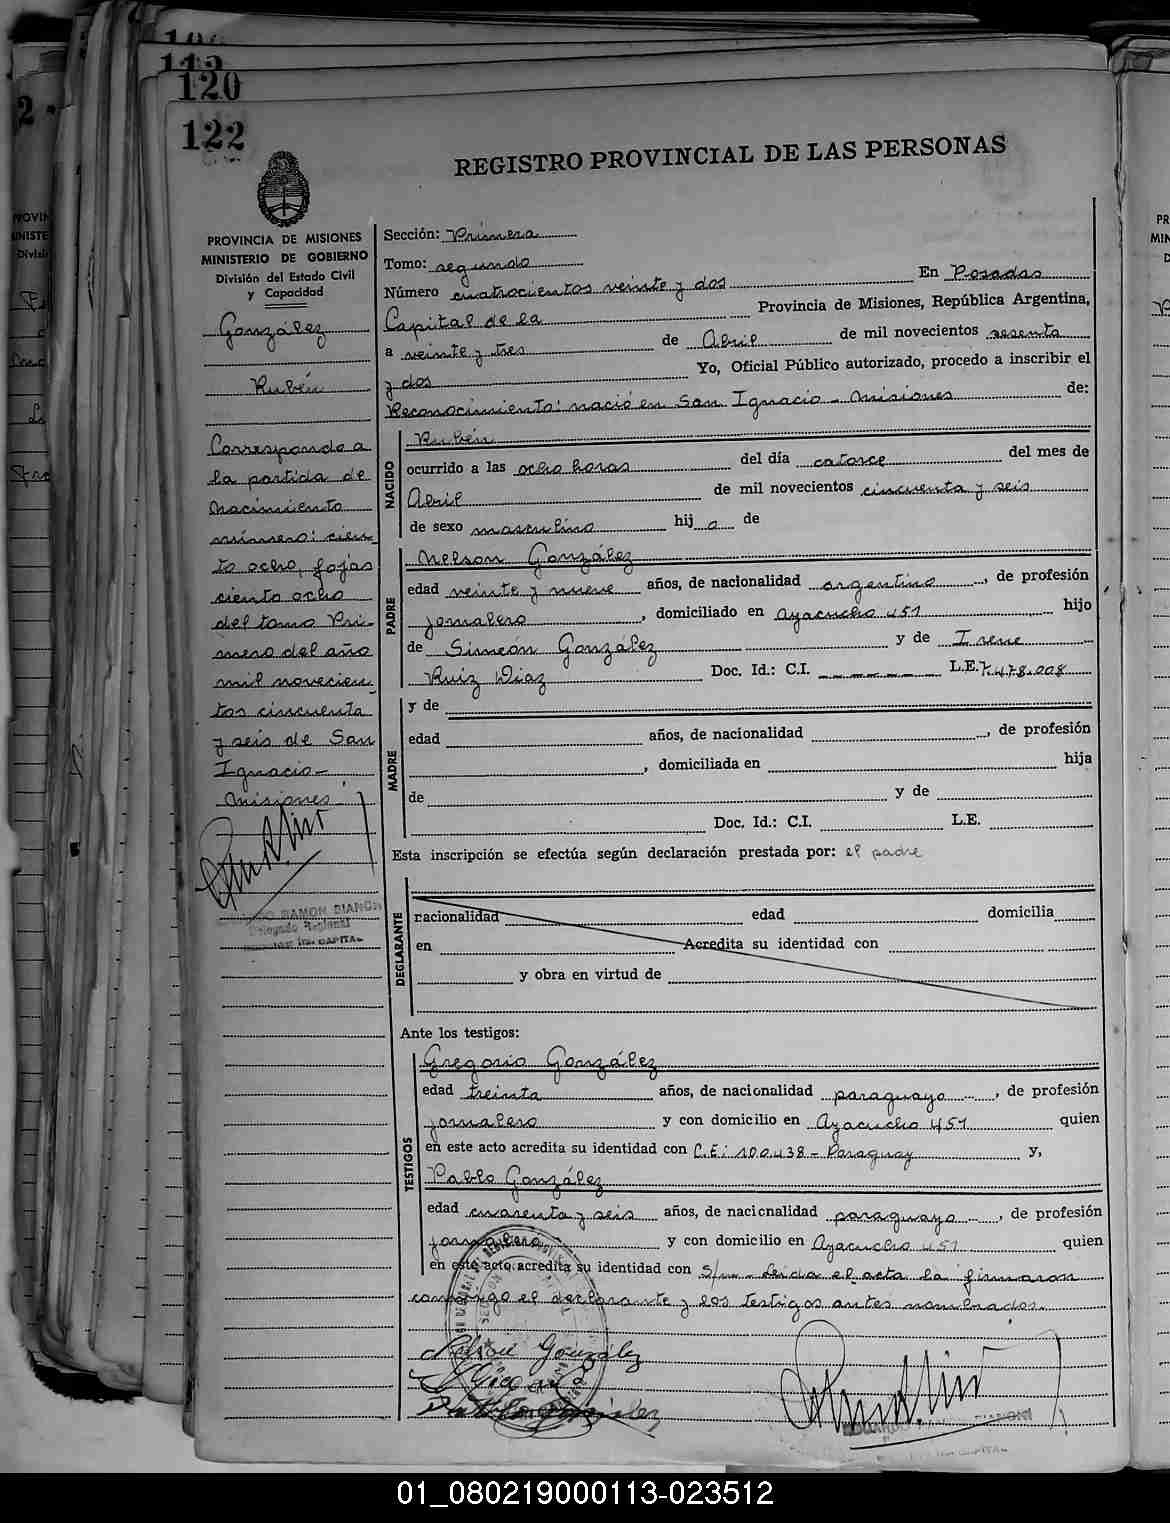 120
122
REGISTRO PROVINCIAL DE LAS PERSONAS
PROVINCIA DE MISIONES
MINISTERIO DE GOBIERNO
División del Estado Civil
y Capacidad
González
Rubén
Corresponde a
la partida de
nacimiento
número: cien-
to ocho, fojas
ciento ocho
del tomo Pri-
mero del año
mil novecien-
tos cincuenta
y seis de San
Ignacio-
Misiones
RAMON BIANCHI
Delegado Regional
CAPITAL
Sección: Primera
Tomo: segundo
Número cuatrocientos veinte y dos En Posadas
Capital de la Provincia de Misiones, República Argentina,
a veinte y tres de Abril de mil novecientos sesenta
y dos Yo, Oficial Público autorizado, procedo a inscribir el
Reconocimiento: nació en San Ignacio - Misiones de:
NACIDO
Rubén
ocurrido a las ocho horas del día catorce del mes de
Abril de mil novecientos cincuenta y seis
de sexo masculino hij o de
PADRE
Nelson González
edad veinte y nueve años, de nacionalidad argentino, de profesión
jornalero, domiciliado en Ayacucho 451 hijo
de Simeón González y de Irene
Ruiz Diaz Doc. Id.: C.I. ------ L.E. 7.478.008
MADRE
y de
edad años, de nacionalidad, de profesión
, domiciliada en hija
de y de
Doc. Id.: C.I. L.E.
Esta inscripción se efectúa según declaración prestada por: el padre
DECLARANTE
nacionalidad edad domicilia
en Acredita su identidad con
y obra en virtud de
Ante los testigos:
TESTIGOS
Gregorio González
edad treinta años, de nacionalidad paraguayo, de profesión
jornalero y con domicilio en Ayacucho 451 quien
en este acto acredita su identidad con C.E: 100.438 - Paraguay y,
Pablo González
edad cuarenta y seis años, de nacionalidad paraguayo, de profesión
jornalero y con domicilio en Ayacucho 451 quien
en este acto acredita su identidad con S/n - Leida el acta la firmaron
conmigo el declarante y los testigos antes nombrados.
Nelson González
01_080219000113-023512